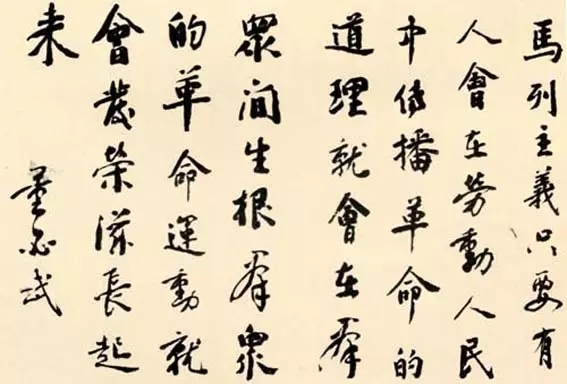 馬列主義只要有
人會在勞動人民
中傳播革命的
道理就會在羣
眾間生根羣眾
的革命運動就
會發榮滋長起
来
董必武